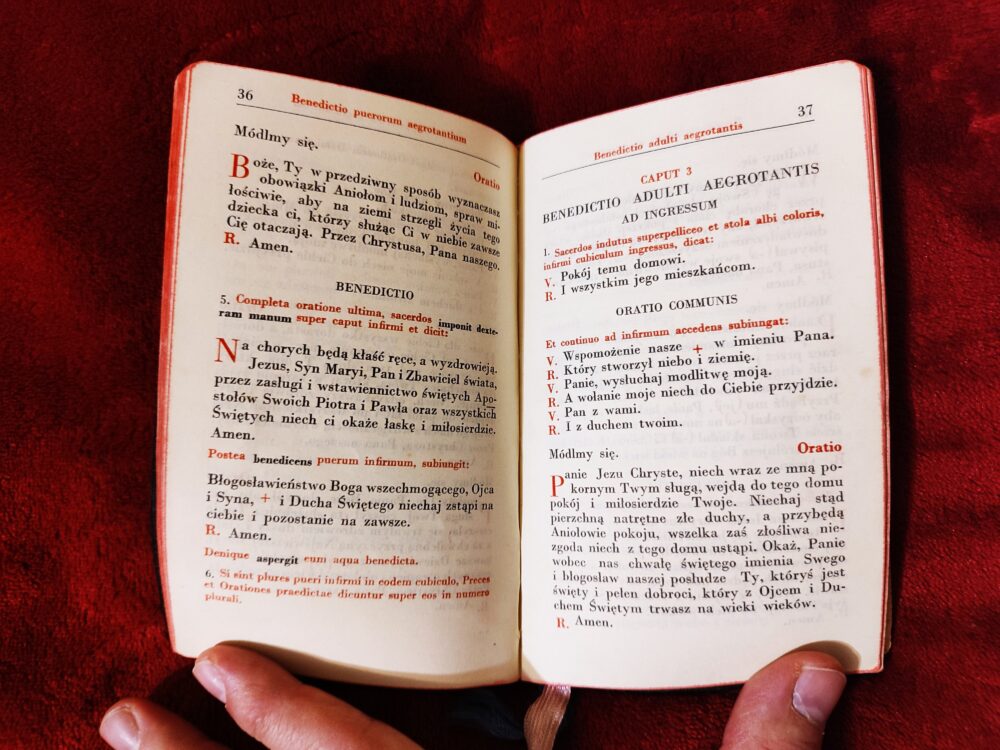 36
Benedictio puerorum aegrotantium
Módlmy się.
Oratio
Boże, Ty w przedziwny sposób wyznaczasz
obowiązki Aniołom i ludziom, spraw mi-
łościwie, aby na ziemi strzegli życia tego
dziecka ci, którzy służąc Ci w niebie zawsze
Cię otaczają. Przez Chrystusa, Pana naszego.
R. Amen.
BENEDICTIO
5. Completa oratione ultima, sacerdos imponit dexte-
ram manum super caput infirmi et dicit:
Na chorych będą kłaść ręce, a wyzdrowieją.
Jezus, Syn Maryi, Pan i Zbawiciel świata,
przez zasługi i wstawiennictwo świętych Apo-
stołów Swoich Piotra i Pawła oraz wszystkich
Świętych niech ci okaże łaskę i miłosierdzie.
Amen.
Postea benedicens puerum infirmum, subiungit:
Błogosławieństwo Boga wszechmogącego, Ojca
i Syna, + i Ducha Świętego niechaj zstąpi na
ciebie i pozostanie na zawsze.
R. Amen.
Denique aspergit eum aqua benedicta.
6. Si sint plures pueri infirmi in eodem cubiculo, Preces
et Orationes praedictae dicuntur super eos in numero
plurali.
37
Benedictio adulti aegrotantis
CAPUT 3
BENEDICTIO ADULTI AEGROTANTIS
AD INGRESSUM
1. Sacerdos indutus superpelliceo et stola albi coloris,
infirmi cubiculum ingressus, dicat:
V. Pokój temu domowi.
R. I wszystkim jego mieszkańcom.
ORATIO COMMUNIS
Et continuo ad infirmum accedens subiungat:
V. Wspomożenie nasze + w imieniu Pana.
R. Który stworzył niebo i ziemię.
V. Panie, wysłuchaj modlitwę moją.
R. A wołanie moje niech do Ciebie przyjdzie.
V. Pan z wami.
R. I z duchem twoim.
Módlmy się.
Oratio
Panie Jezu Chryste, niech wraz ze mną po-
kornym Twym sługą, wejdą do tego domu
pokój i miłosierdzie Twoje. Niechaj stąd
pierzchną natrętne złe duchy, a przybędą
Aniołowie pokoju, wszelka zaś złośliwa nie-
zgoda niech z tego domu ustąpi. Okaż, Panie
wobec nas chwałę świętego imienia Swego
i błogosław naszej posłudze Ty, któryś jest
święty i pełen dobroci, który z Ojcem i Du-
chem Świętym trwasz na wieki wieków.
R. Amen.